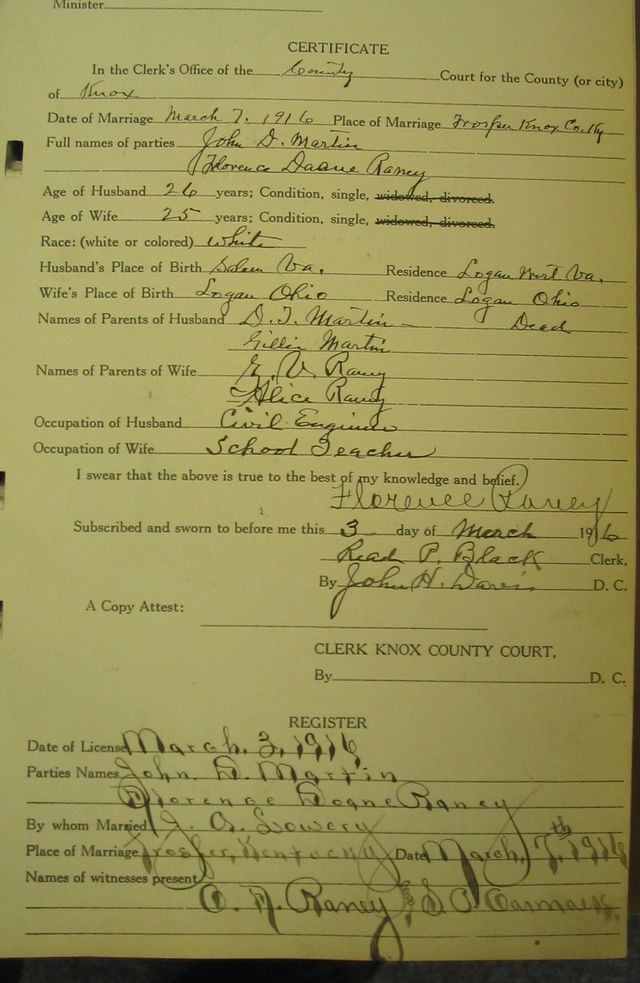 Minister
CERTIFICATE
In the Clerk's Office of the County Court for the County (or city)
of Knox
Date of Marriage March 7, 1916 Place of Marriage Trosper Knox Co. Ky
Full names of parties John D. Martin
Florence Doane Raney
Age of Husband 26 years; Condition, single, widowed, divorced.
Age of Wife 25 years; Condition, single, widowed, divorced.
Race: (white or colored) White
Husband's Place of Birth Salem Va. Residence Logan West Va.
Wife's Place of Birth Logan Ohio Residence Logan Ohio
Names of Parents of Husband D. T. Martin - Dead
Martin
Names of Parents of Wife V. Raney
Alice Raney
Occupation of Husband Civil Engineer
Occupation of Wife School Teacher
I swear that the above is true to the best of my knowledge and belief.
Florence Raney
Subscribed and sworn to before me this 3 day of March 1916
Read P. Black Clerk,
By John H. Davis D. C.
A Copy Attest:
CLERK KNOX COUNTY COURT,
By D. C.
REGISTER
Date of License March, 3, 1916
Parties Names John. D. Martin
Florence Doane Raney
By whom Married J. A. Lowery
Place of Marriage Trosper, Kentucky Date March, 7th, 1916
Names of witnesses present
Raney & S. C. Carmack